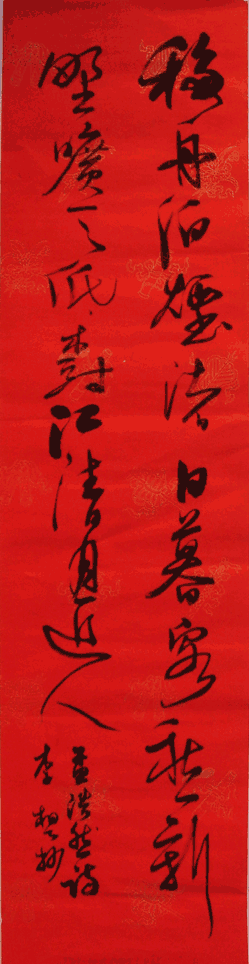 移舟泊煙渚日暮客愁新
野曠天低樹江清月近人
孟浩然詩
李抄